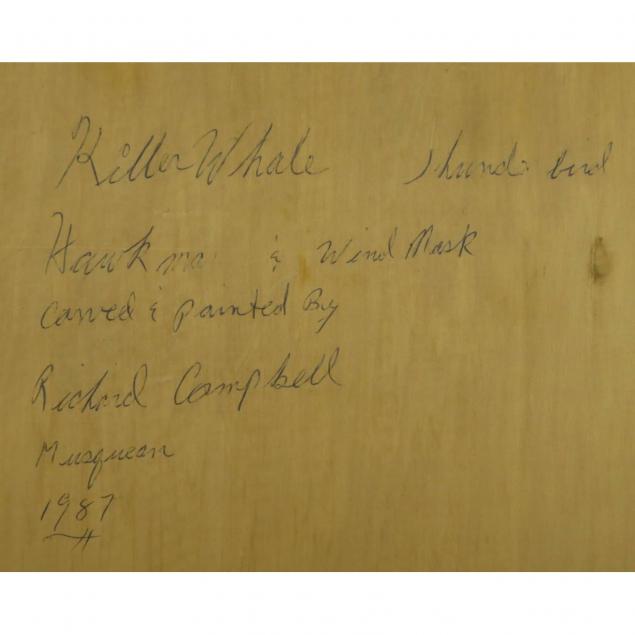 Killer Whale Thunder bird
Hawk man & Wind Mask
Carved & Painted By
Richard Campbell
Musqueam
1987